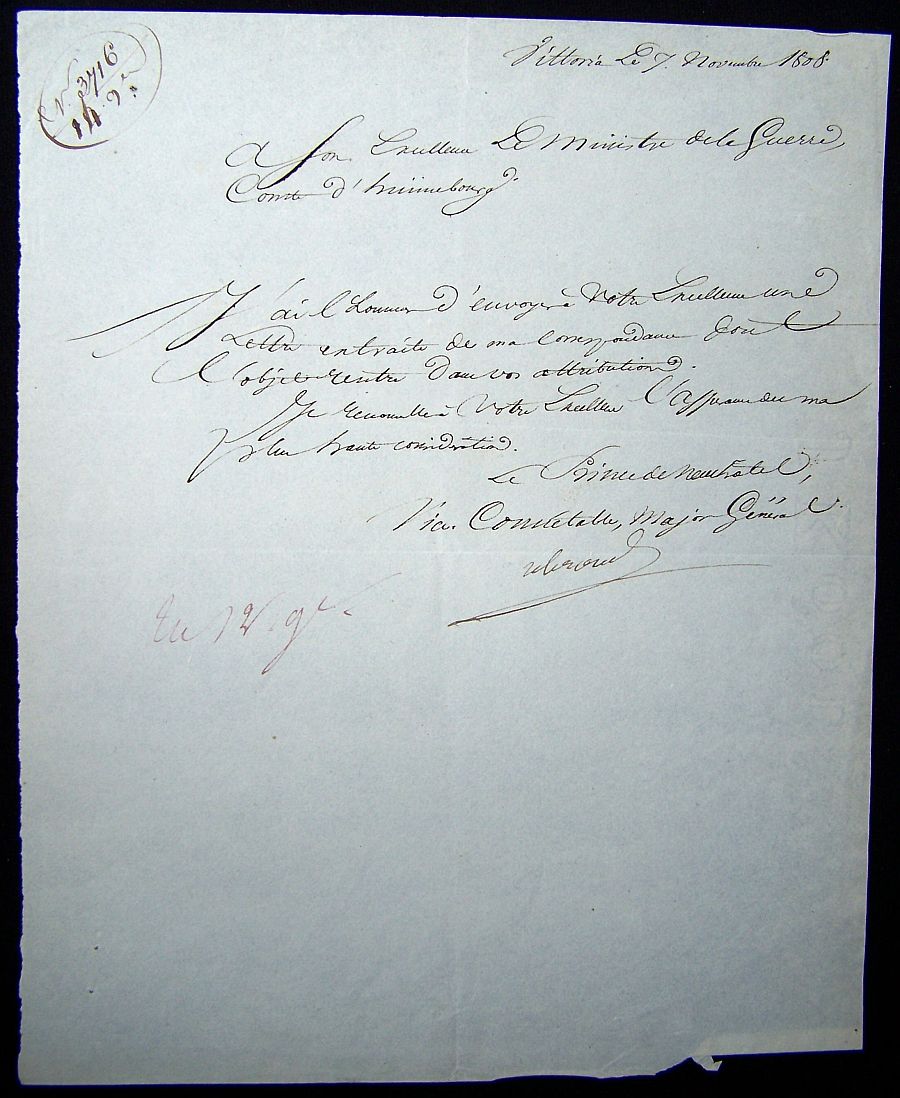 N. 3716
14. 9re
Vittoria Le 7. Novembre 1808.
A Son Excellence Le Ministre de la Guerre,
Comte d'hunnebourg.
J'ai l'honneur d'envoyer à Votre Excellence une
Lettre extraite de ma Correspondance dont
l'objet rentre dans vos attributions.
Je renouvelle à Votre Excellence l'assurance de ma
plus haute considération.
Le Prince de Neuchatel,
Vice Connétable, Major Général